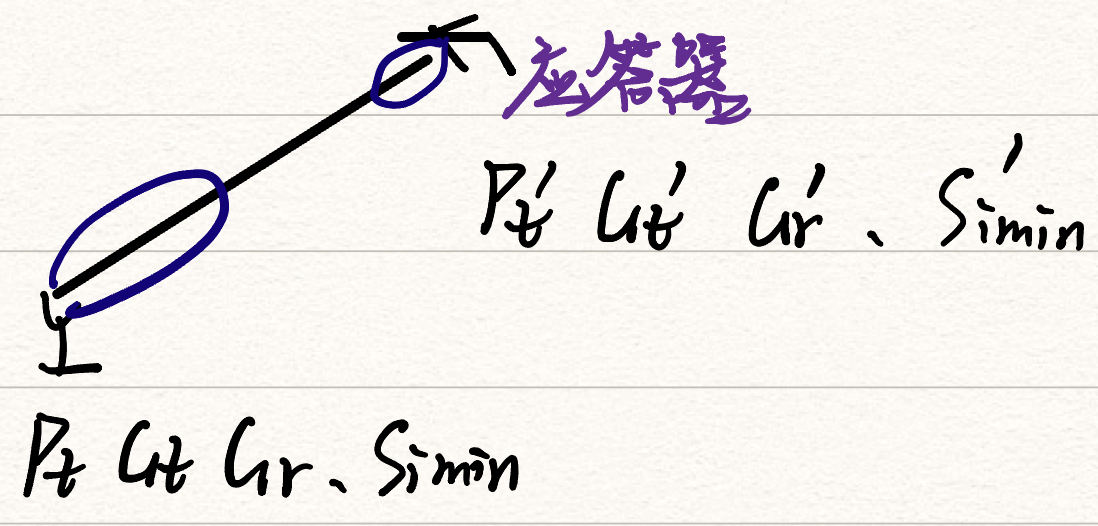 应答器
Pt' Gt' Gr'、Simin'
Pt Gt Gr、Simin